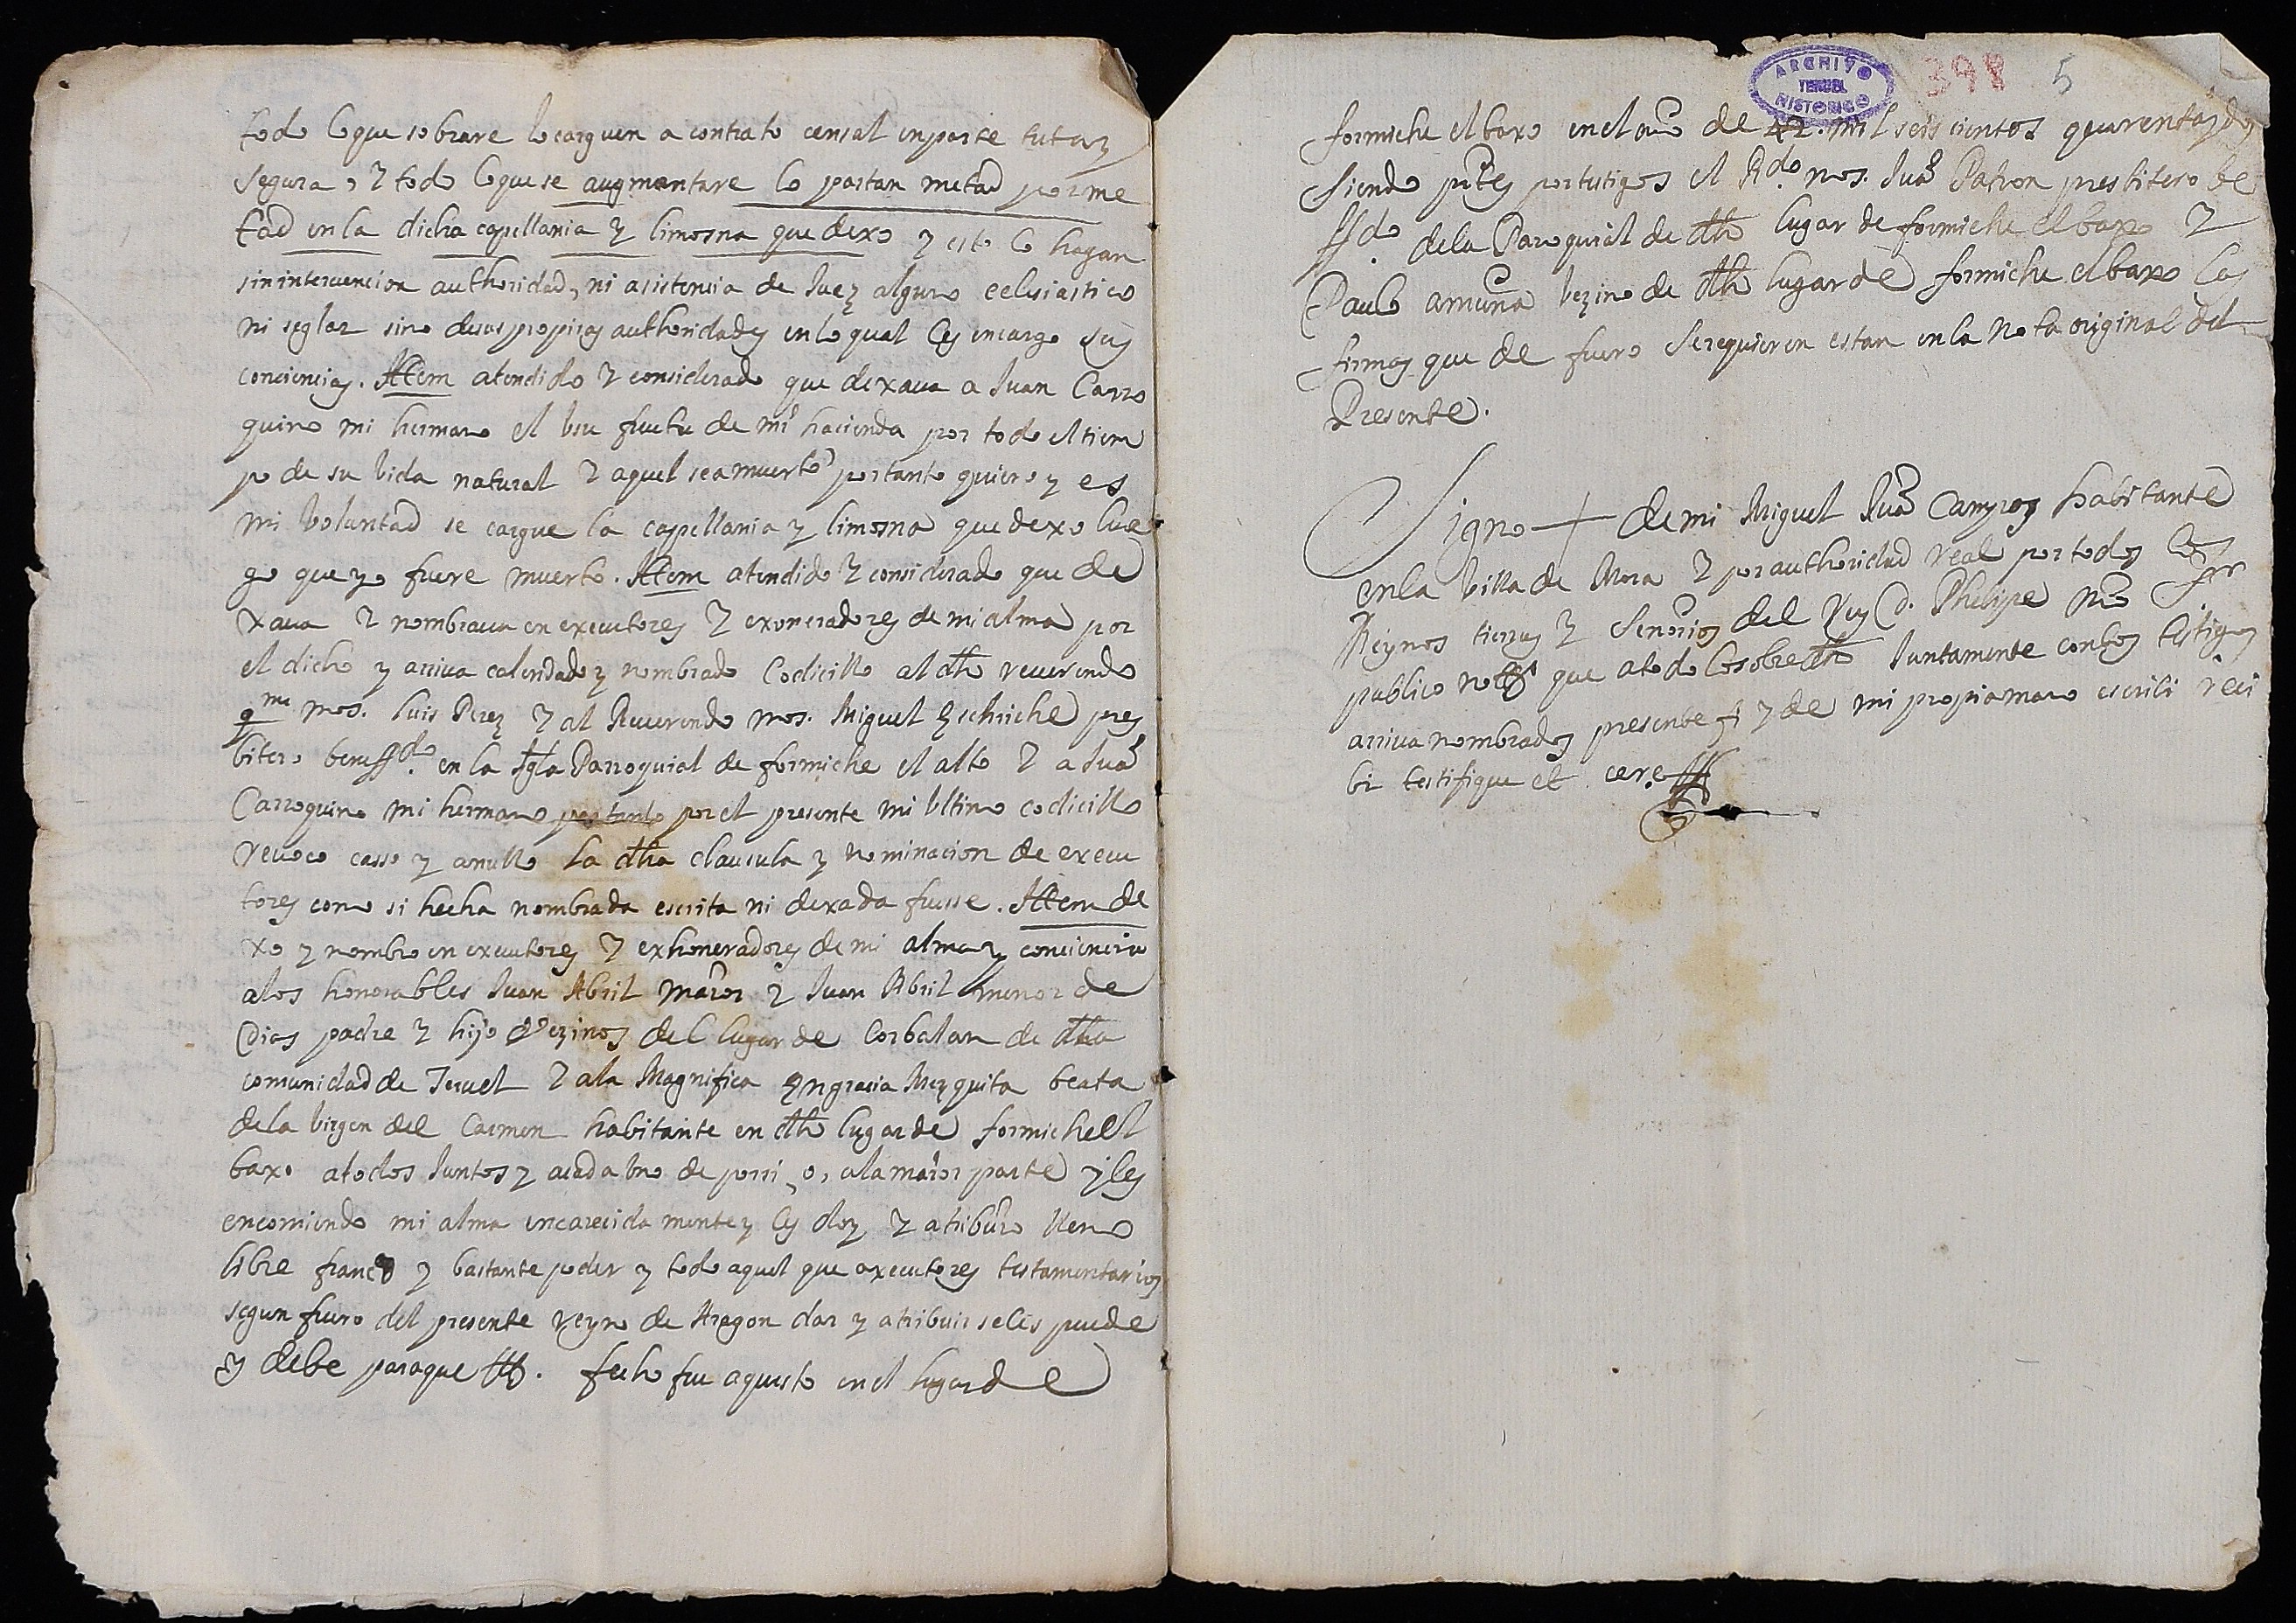 todo lo que sobrare lo carguen a contrato censal en parte tuta y
segura, y todo lo que se augmentare lo partan metad por me
tad en la dicha capellania y limosna que dexo y esto lo hagan
sin intervencion authoridad, ni asistencia de Juez alguno eclesiastico
ni seglar sino de sus propias authoridades en lo qual les encargo sus
conciencias. Ittem atendido y considerado que dexava a Juan Carro
quino mi hermano el usu fructu de mi hacienda por todo el tiem
po de su vida natural y aquel sea muerto por tanto quiero y es
mi voluntad se cargue la cappellania y limosna que dexo lue
go que yo fuere muerto. Ittem atendido y considerado que de
xava y nombrava en executores y exoneradores de mi alma por
el dicho y arriva calendado y nombrado Codicillo al dho reverendo
mos. Luis Perez y al Reverendo mos. Miguel Escriche pres
bitero beneffdo. en la Igla Parroquial de formiche el alto y a Juã
Carroquino mi hermano por tanto por el presente mi ultimo codicillo
revoco casso y anullo la dha clausula y nominacion de execu
tores como si hecha nombrada escrita ni dexada fuesse. Ittem de
xo y nombro en executores y exhoneradores de mi alma y conciencia
a los honorables Juan Abril maior y Juan Abril menor de
dias padre y hijo vezinos del lugar de Corbalan de dha
comunidad de Teruel y a la Magnifica Engracia Mezquita beata
de la Virgen del Carmen habitante en dho lugar de formiche el
baxo a todos Juntos y a cada uno de por si, o, a la maior parte y les
encomiendo mi alma encarecida mente y les doy y atribuio lleno
libre franco y bastante poder y todo aquel que executores testamentarios
segun fuero del presente reyno de Aragon dar y atribuir se les puede
y debe para que. fecho fue aquesto en el lugar de
ARCHIVO
TERUEL
HISTORICO
398 5
formiche el baxo en el año de 42. mil seis cientos quarenta y dos
siendo prtes por testigos el Rdo mos. Juã Patron presbitero be
ffdo. de la Parroquial de dho lugar de formiche el baxo y
Paulo amuña vezino de dho lugar de formiche el baxo las
firmas que de fuero se requieren estan en la nota original del
Presente.
Signo + de mi Miguel Juã Campos habitante
en la villa de Mora y por authoridad real por todos los
Reynos tierras y Señorios del Rey D. Philipe nro Sor
publico notº que a todo lo sobredho Juntamente con los testigos
arriva nombrados presente fi y de mi propia mano escribi reci
bi testifique et cere